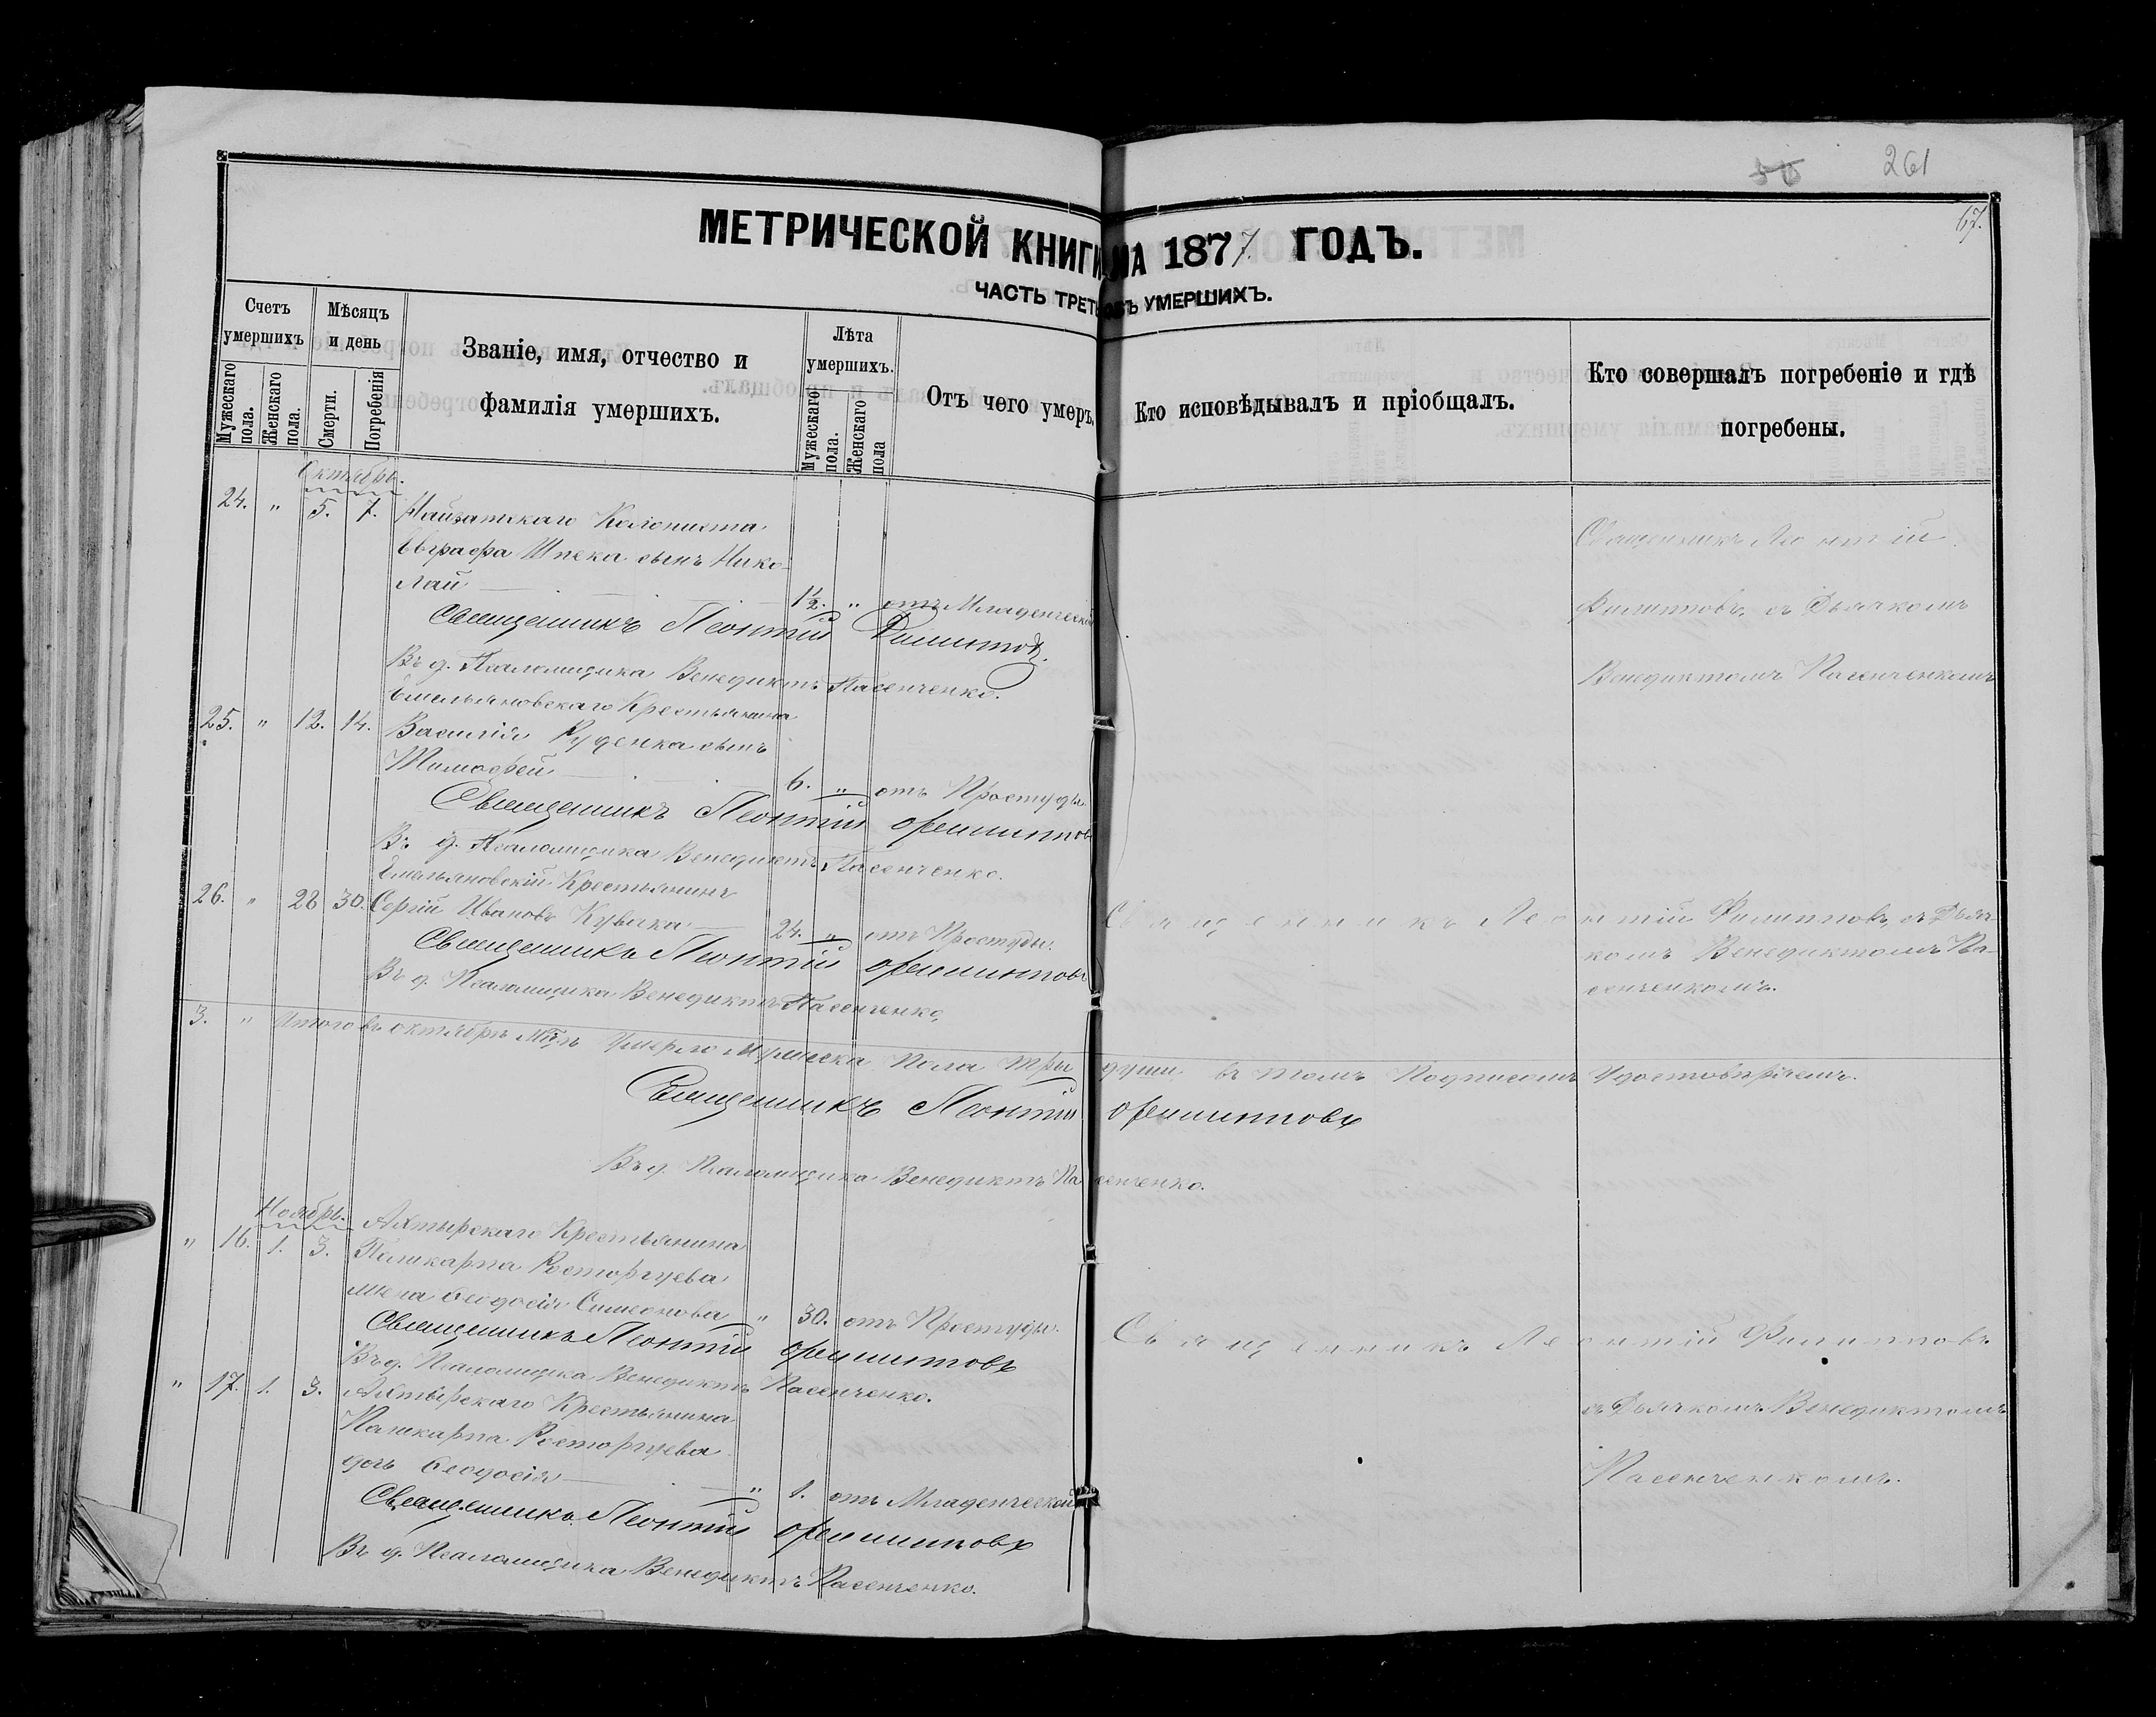 50 261
67.
МЕТРИЧЕСКОЙ КНИГИ НА 1877. ГОДЪ.
ЧАСТЬ ТРЕТ ОБЪ УМЕРШИХЪ.
Счетъ умершихъ
Мужескаго пола.
Женскаго пола.
Мѣсяцъ и день
Смерти.
Погребенія
Званіе, имя, отчество и фамилія умершихъ.
Лѣта умершихъ.
Мужескаго пола.
Женскаго пола
Отъ чего умеръ.
Кто исповѣдывалъ и пріобщалъ.
Кто совершалъ погребеніе и гдѣ погребены.
Октябрь.
24. " 5. 7. Колониста
Евграфа Шпека сынъ Нико-
лай 1½. " отъ Младенческой
Священникъ Леонтій Филиппов.
Въ д. Псаломщика Венедиктъ Пасенченко.
Священникъ Леонтій
Филипповъ, съ Дьячкомъ
Венедиктомъ Пасенченкомъ
Емельяновскаго Крестьянина
25. " 12. 14. Василія Руденка сынъ
Тимофей 6. " отъ Простуды.
Священникъ Леонтій Филиппов
Въ д. Псаломщика Венедиктъ Пасенченко.
Емельяновскій Крестьянинъ
26. " 28 30. Сергій Ивановъ Кувака 24. " отъ Простуды.
Священникъ Леонтій Филипповъ
Въ д. Псаломщика Венедиктъ Пасенченко.
Священникъ Леонтій Филипповъ, съ Дьяч-
комъ Венедиктомъ Па-
сенченкомъ.
3. " Итого въ октябрѣ Мцѣ Умерло Мужеска Пола три души въ томъ Подписомъ Удостовѣряемъ.
Священникъ Леонтій Филипповъ
Въ д. Псаломщика Венедиктъ Пасенченко.
Ноябрь.
Ахтырскаго Крестьянина
" 16. 1. 3. Поликарпа Расторгуева
жена Ѳеодосія Симеонова " 30. отъ Простуды.
Священникъ Леонтій Филипповъ
Въ д. Псаломщика Венедиктъ Пасенченко.
Священникъ Леонтій Филипповъ
съ Дьячкомъ Венедиктомъ
Пасенченкомъ.
" 17. 1. 3. Ахтырскаго Крестьянина
Поликарпа Расторгуева
дочь Ѳеодосія " 1. отъ Младенческой
Священникъ Леонтій Филипповъ
Въ д. Псаломщика Венедиктъ Пасенченко.